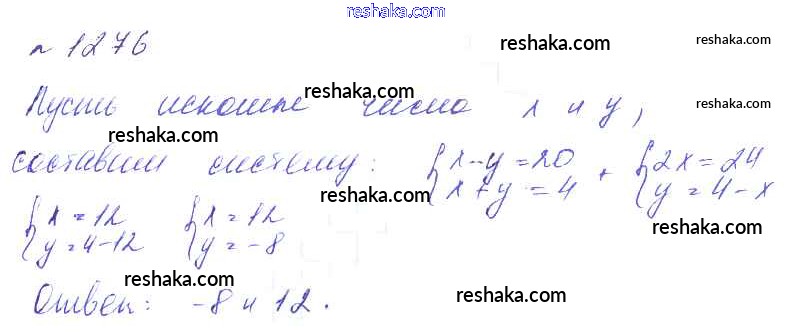 reshaka.com
№ 1276
reshaka.com reshaka.com
Пусть искомые числа x и y,
reshaka.com reshaka.com
reshaka.com
составим систему: { x-y=20 x+y=4 + { 2x=24 y=4-x
reshaka.com reshaka.com
{ x=12 y=4-12 { x=12 y=-8
reshaka.com reshaka.com
reshaka.com
Ответ: -8 и 12.
reshaka.com
reshaka.com